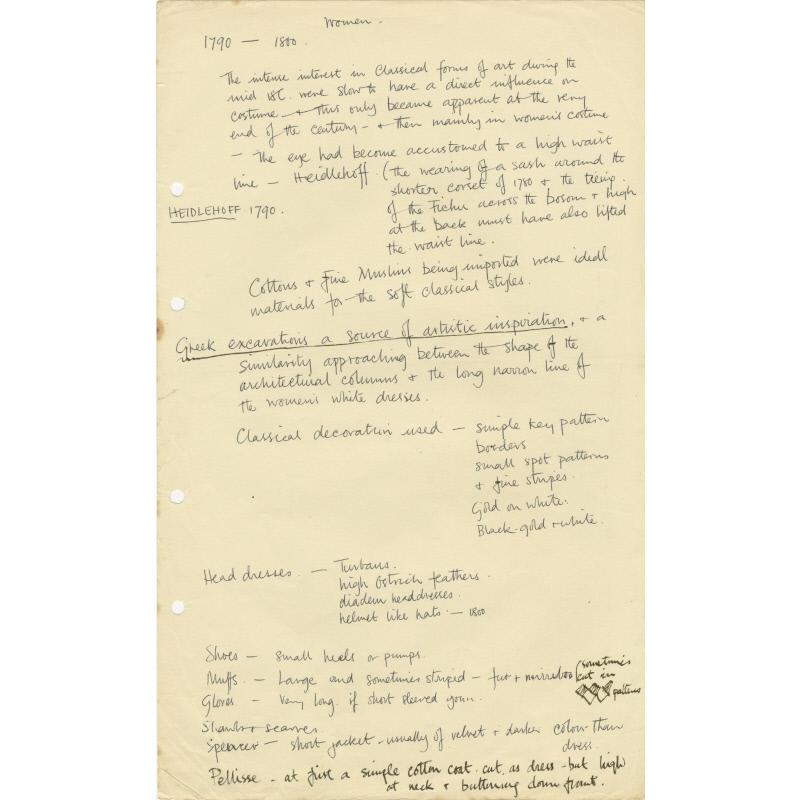 Women.
1790 — 1800.
The intense interest in Classical forms of art during the
mid 18C. were slow to have a direct influence on
costume — & this only became apparent at the very
end of the century — & then mainly in women's costume
— The eye had become accustomed to a high waist
line — Heidlehoff. (the wearing of a sash around the
shorter corset of 1780 & the tieing
HEIDLEHOFF 1790.
of the Fichu across the bosom & high
at the back must have also lifted
the waist line.
Cottons & Fine Muslins being imported were ideal
materials for the soft classical styles.
Greek excavations a source of artistic inspiration, & a
similarity approaching between the shape of the
architectural columns & the long narrow line of
the women's white dresses.
Classical decoration used — simple key pattern
borders
small spot patterns
& fine stripes.
Gold on white.
Black-gold & white.
Head dresses. — Turbans.
high Ostrich feathers.
diadem headdresses.
helmet like hats. — 1800
Shoes — small heels or pumps.
Muffs. — Large and sometimes striped — fur &
(sometimes
cut in
patterns
Gloves — very long. if short sleeved gown.
Shawls & scarves
Spencer — short jacket — usually of velvet & darker colour than
dress.
Pellisse — at first a simple cotton coat. cut as dress — but high
at neck & buttoning down front.